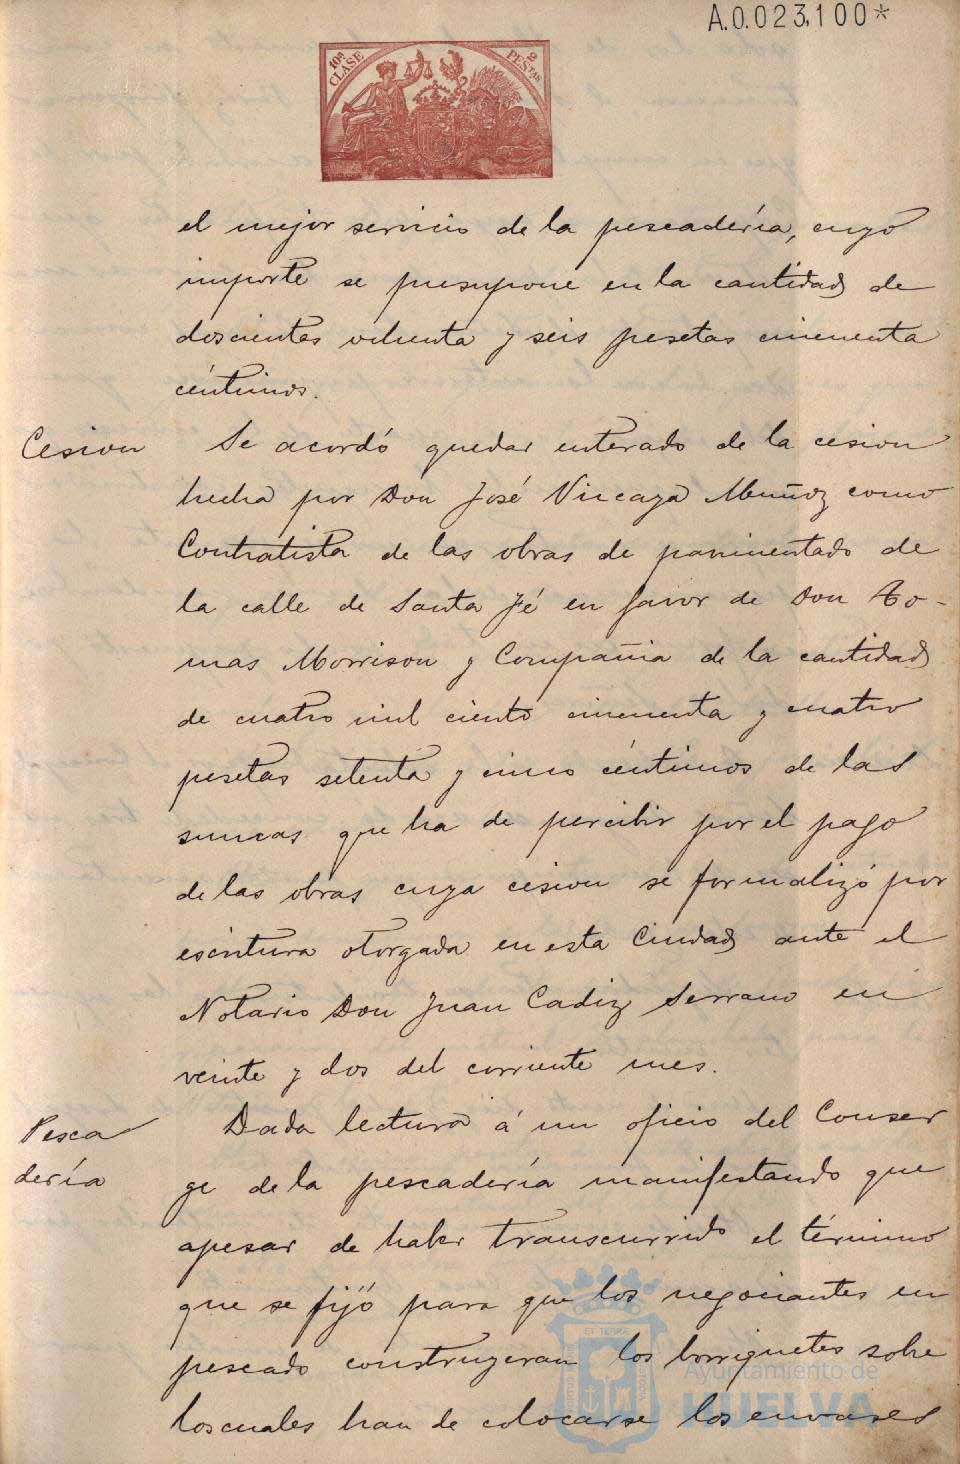 A.0.023,100*
10ª CLASE
2 PESTAS
el mejor servicio de la pescadería, cuyo
importe se presupone en la cantidad de
doscientas ochenta y seis pesetas cincuenta
céntimos.
Cesion
Se acordó quedar enterado de la cesion
hecha por Don José Vizcaya Muñoz como
Contratista de las obras de pavimentado de
la calle de Santa Fé en favor de Don To-
mas Morrison y Compañia de la cantidad
de cuatro mil ciento cincuenta y cuatro
pesetas setenta y cinco céntimos de las
sumas que ha de percibir por el pago
de las obras cuya cesion se formalizó por
escritura otorgada en esta Ciudad ante el
Notario Don Juan Cadiz Serrano en
veinte y dos del corriente mes.
Pesca
dería
Dada lectura á un oficio del Conser
ge de la pescadería manifestando que
apesar de haber transcurrido el término
que se fijó para que los negociantes en
pescado construyeran los borriquetes sobre
los cuales han de colocarse los envases
Ayuntamiento de
HUELVA